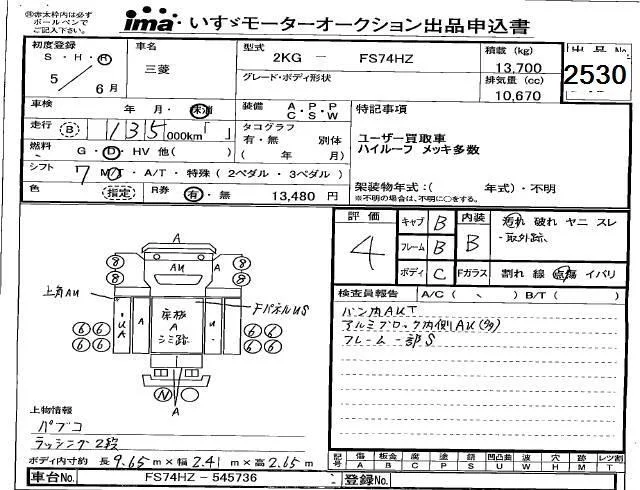 ㊟赤太枠内は必ず
ボールペンで
ご記入下さい。
ima いすゞモーターオークション出品申込書
初度登録
S・H・R
5 / 6月
車名
三菱
型式
2KG － FS74HZ
グレード・ボディ形状
積載 (kg)
13,700
排気量 (cc)
10,670
出品No
2530
車検 年 月・ 抹消
走行 B 135 000km
燃料 G・D・HV 他( )
シフト 7 M/T・A/T・特殊 ( 2ペダル ・ 3ペダル )
色 指定 R券 有・無 13,480 円
装備 A・P・P
C・S・W
タコグラフ
有・無 別体
( 年 月)
特記事項
ユーザー買取車
ハイルーフ メッキ多数
架装物年式:( 年式)・不明
※不明の場合は、不明に○をする。
評価
4
キャブ B
フレーム B
ボディ C
内装 B
Fガラス
汚れ 破れ ヤニ スレ
・取外跡、
割れ 線 点傷 イバリ
検査員報告 A/C ( 、 ) B/T ( )
バン内AUT
アルミブロック内側AU(多)
フレーム一部S
A
8 8 AU 8 8
上角AU
FパネルUS
UA A 床板 A シミ跡 U
6 6 6 6
6 6 6 6
N
A
上物情報
パブコ
ラッシング2段
ボディ内寸約 長9.65m×幅2.41m×高2.65m
記号 傷 板金 腐 塗 錆 凹凸曲 波 穴 跡 レツ割
A B C P S U W H M T
車台No. FS74HZ - 545736
登録No.